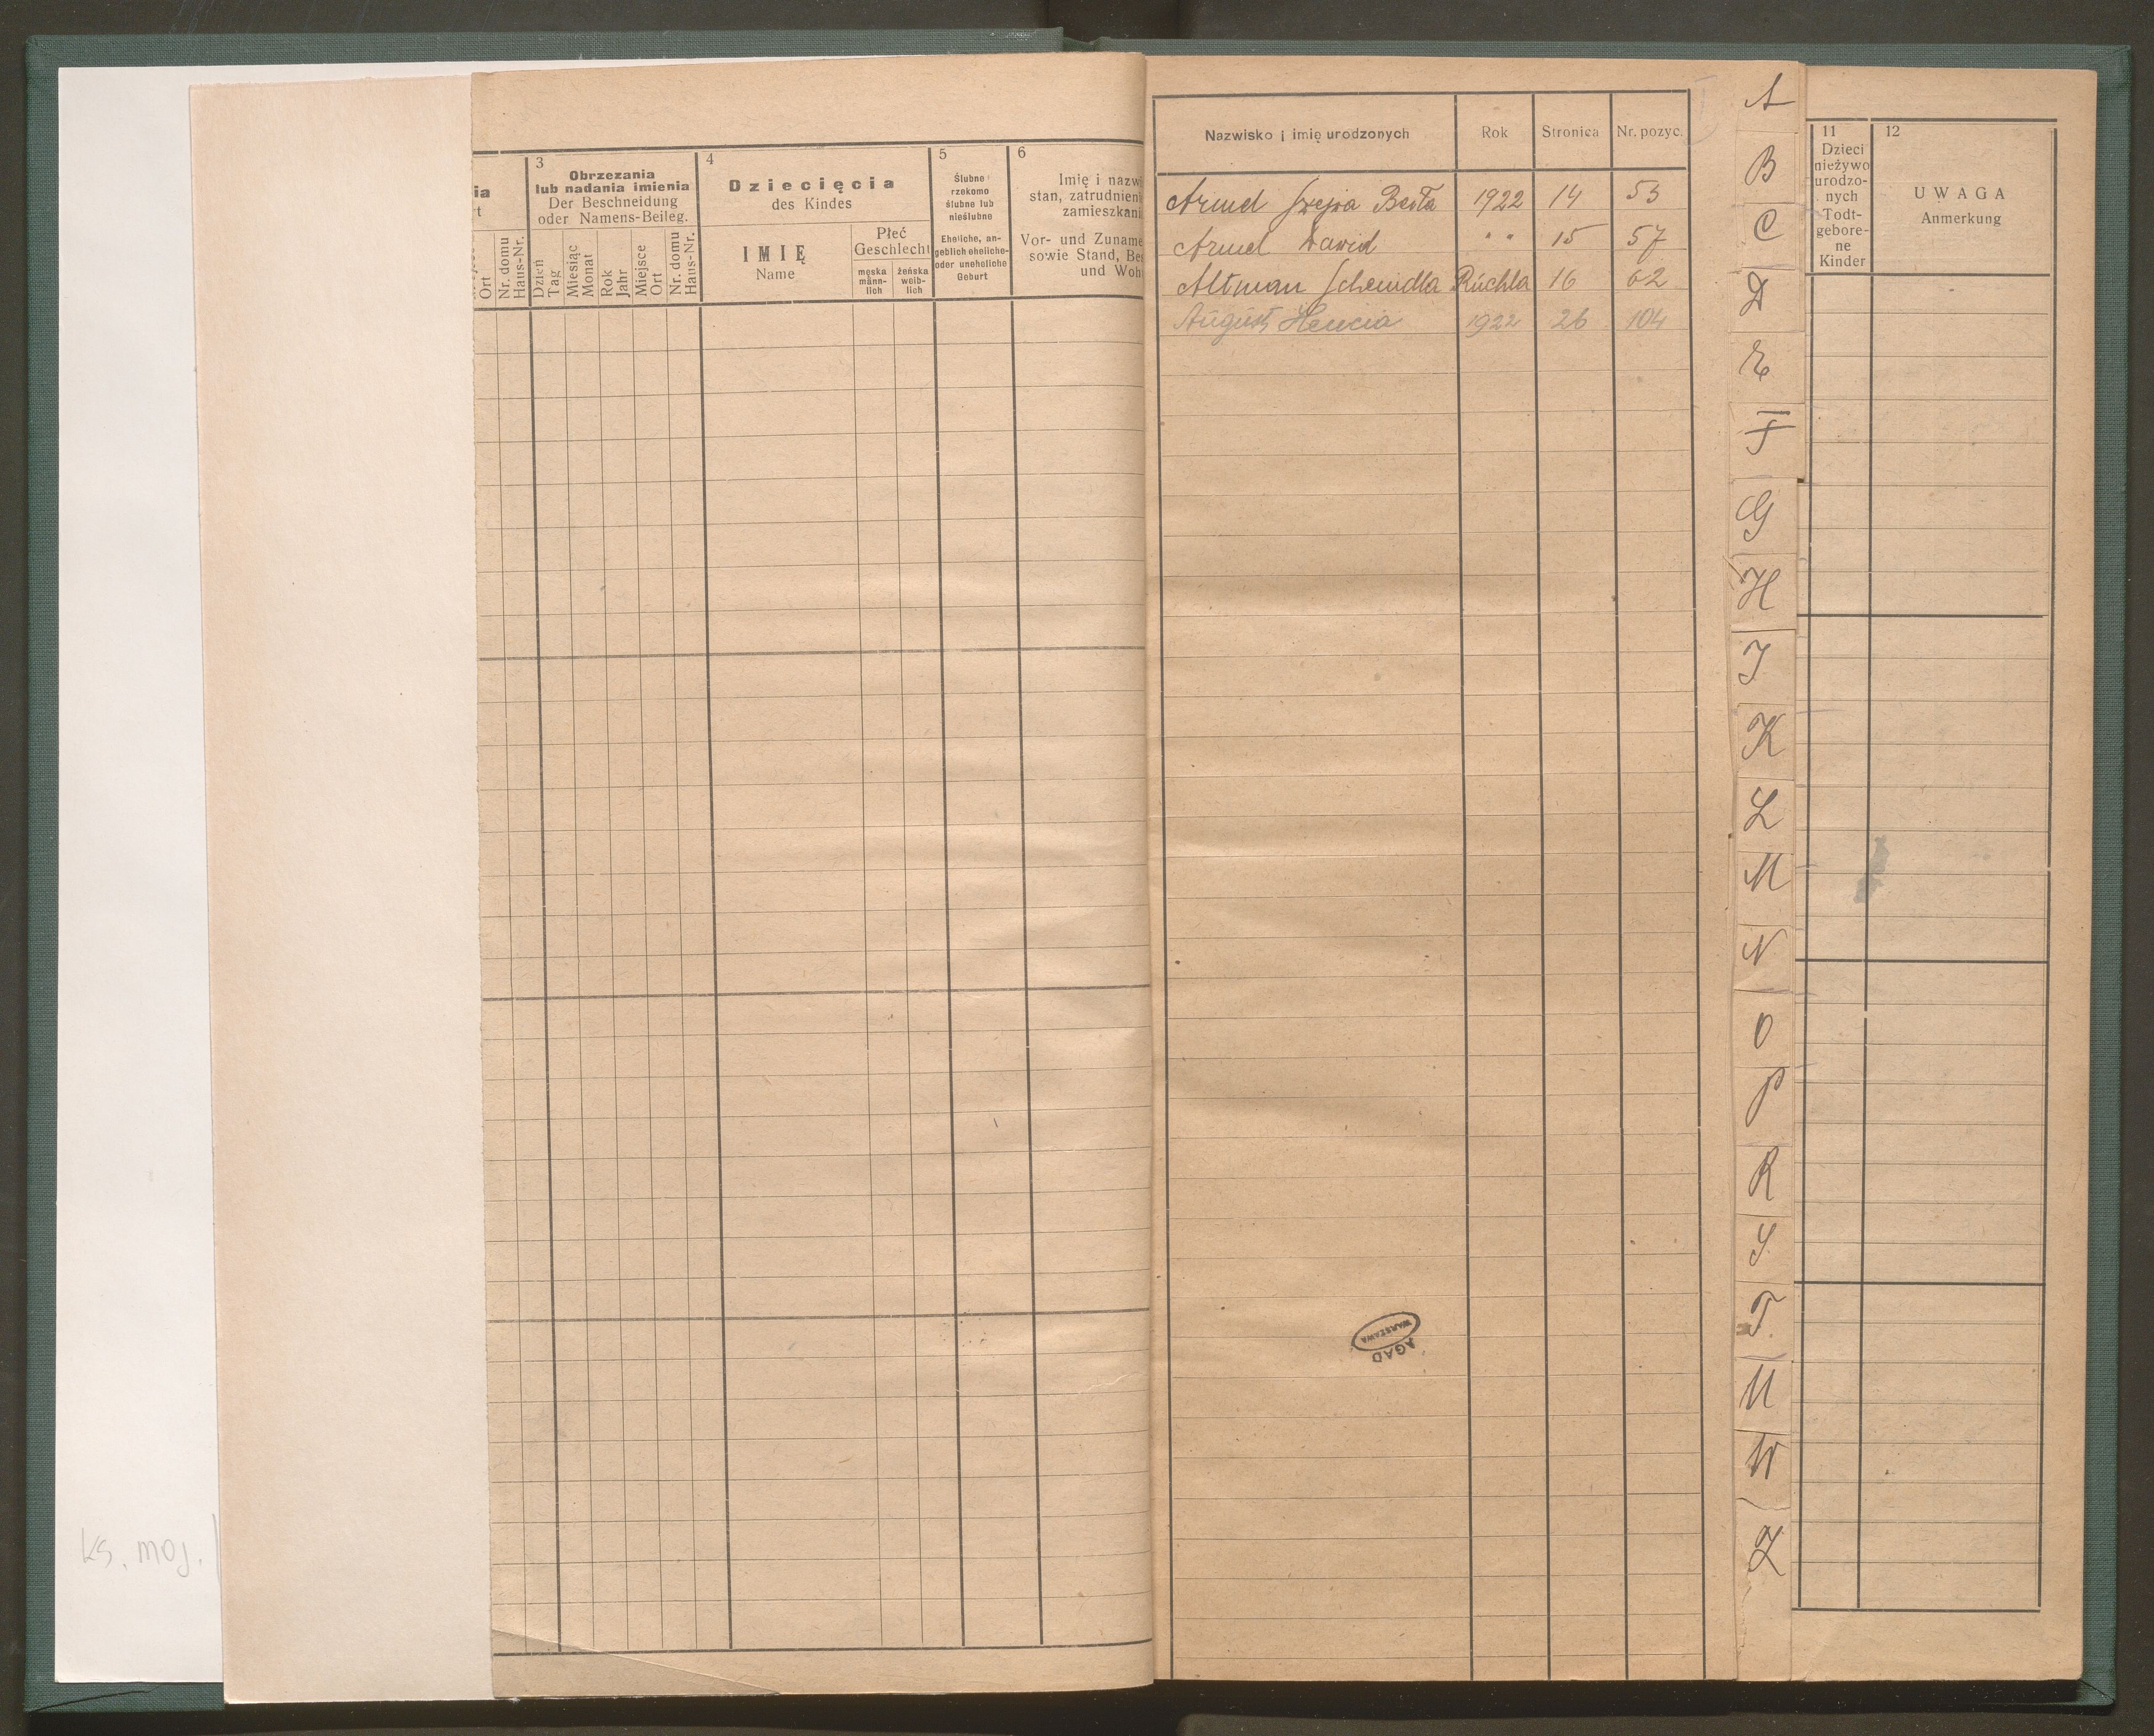 ia
t
Ort
Nr. domu
Haus-Nr.
3
Obrzezania
lub nadania imienia
Der Beschneidung
oder Namens-Beileg.
Dzień
Tag
Miesiąc
Monat
Rok
Jahr
Miejsce
Ort
Nr. domu
Haus-Nr.
4
Dziecięcia
des Kindes
IMIĘ
Name
Płeć
Geschlecht
męska
männ-
lich
żeńska
weib-
lich
5
Ślubne
rzekomo
ślubne lub
nieślubne
Eheliche, an-
geblich eheliche
oder uneheliche
Geburt
6
Imię i nazw
stan, zatrudnien
zamieszkani
Vor- und Zuname
sowie Stand, Be
und Woh
Nazwisko i imię urodzonych Rok Stronica Nr. pozyc.
Berta 1922 14 53
Dawid " " 15 57
Altman Scheindla Ruchla 16 62
August Hencia 1922 26 104
A
B
C
D
E
F
G
H
I
K
L
M
N
O
P
R
S
T.
U
W
Z
11
Dzieci
nieżywo
urodzo-
nych
Todt-
gebore-
ne
Kinder
12
UWAGA
Anmerkung
AGAD
WARSZAWA
ks. moj.